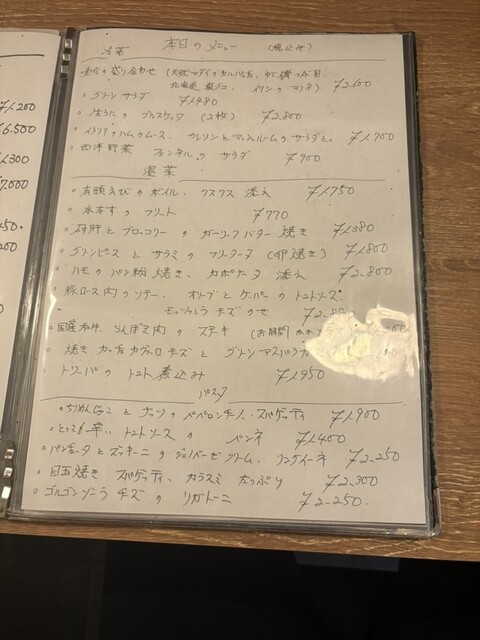 本日のメニュー (税込み)
冷菜
盛り合わせ (天然マダイのカルパッチョ
北海道 イワシのマリネ) ¥2,600
・グリーンサラダ ¥1,480
・生うにの ブルスケッタ (2枚) ¥2,800
・イタリアのハムのムース、クレソンとマッシュルームのサラダと。 ¥1,700
・西洋野菜 フェンネルの サラダ ¥900
温菜
・有頭えびのボイル、クスクス 添え ¥1,750
・水なすの フリート ¥770
・砂肝とブロッコリーの ガーリックバター 焼き ¥1,380
・グリンピースと サラミの フリッターヌ (卵焼き) ¥1,800
・ハモのパン粉焼き、カポナータ 添え ¥2,800
・豚ロース肉のソテー、オリーブとケーパーのトマトソース、
モッツァレラチーズのせ
・国産牛、らんぼそ肉の ステーキ (お時間
・焼きカッチョカヴァロチーズと グリーンアスパラ
・トリッパの トマト煮込み ¥1,950
パスタ
・ちりめんじゃことナッツのペペロンチーノ・スパゲッティ ¥1,900
・とっても辛いトマトソースの ペンネ ¥1,400
・パンチェッタとズッキーニのジェノベーゼクリーム、リングイーネ ¥2,250
・目玉焼き スパゲッティ、カラスミ たっぷり ¥2,300
・ゴルゴンゾーラ チーズの リガトーニ ¥2,250.
¥1,200
6,500
1,300
7,000
450.
200